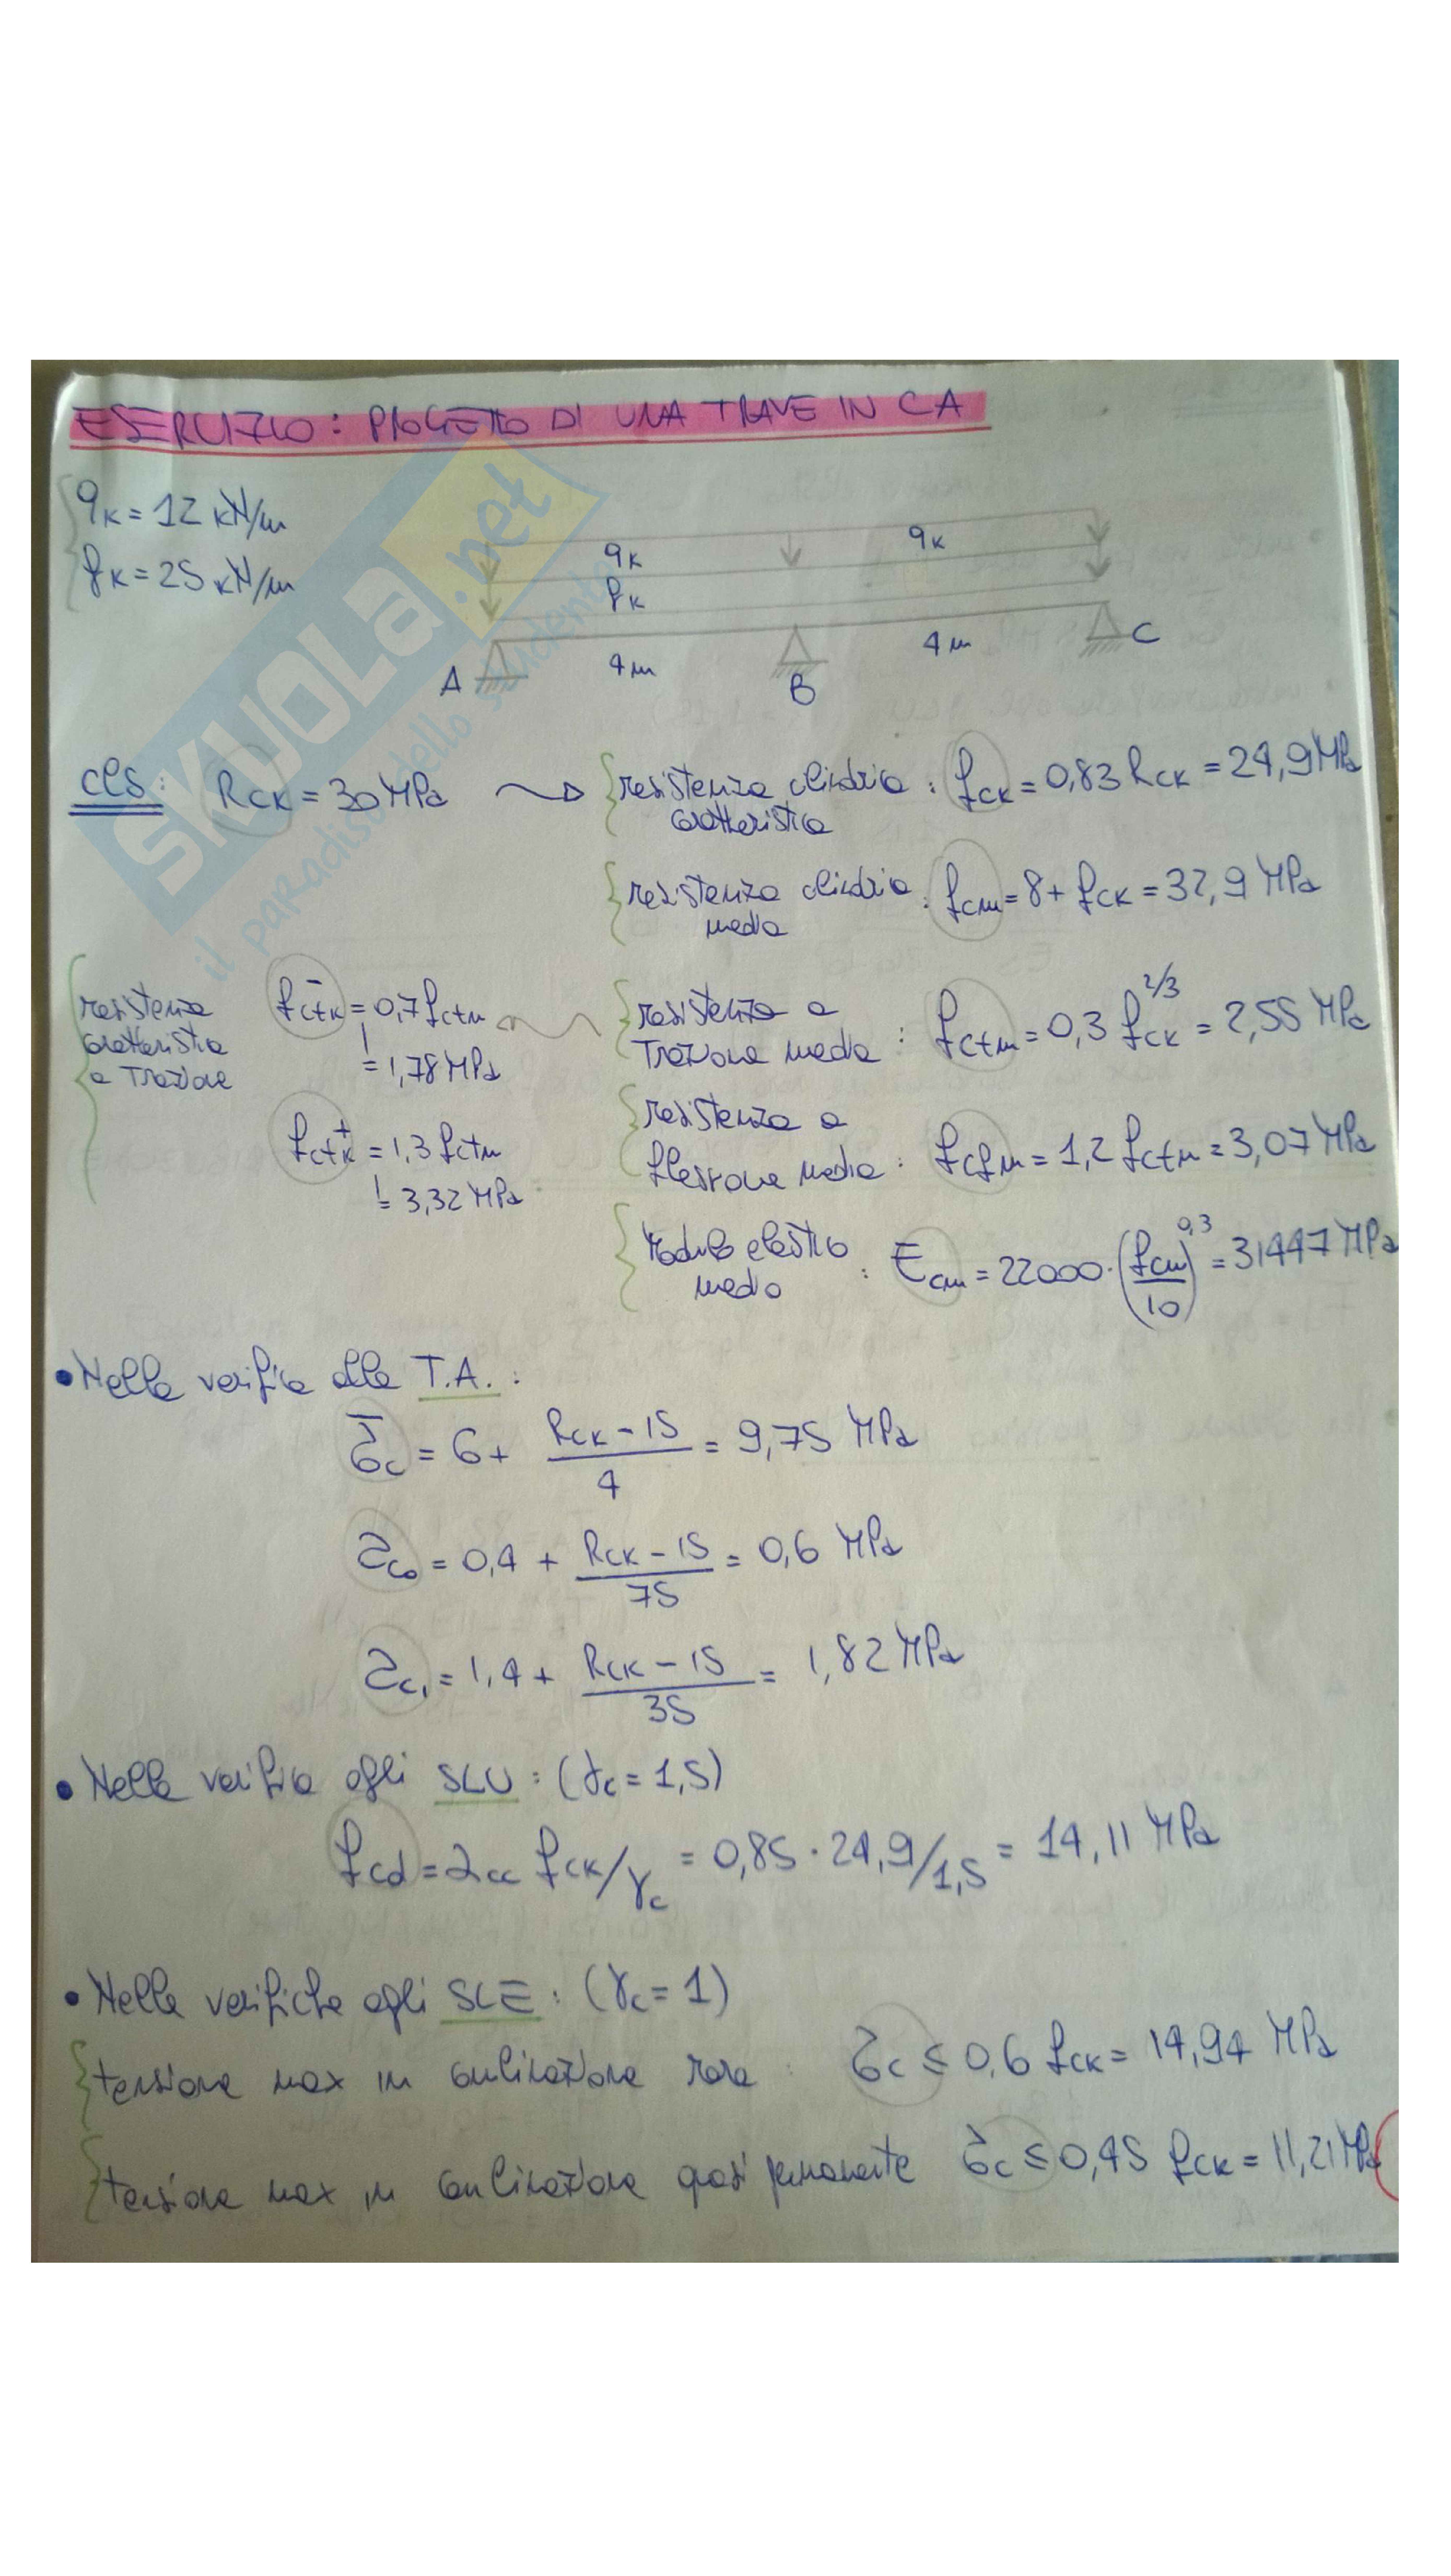 ESERCIZIO: PROGETTO DI UNA TRAVE IN CA
qK = 12 kN/m
fK = 25 kN/m
qK
qK
fK
4 m
4 m
A
B
C
SKUOLA.net
il paradiso dello studente
cls: RCK = 30 MPa
resistenza cilindrica caratteristica : fCK = 0,83 RCK = 24,9 MPa
resistenza cilindrica media : fcm = 8 + fCK = 32,9 MPa
resistenza caratteristica a Trazione
fctK⁻ = 0,7 fctm
= 1,78 MPa
fctK⁺ = 1,3 fctm
= 3,32 MPa
resistenza a Trazione media : fctm = 0,3 fCK^2/3 = 2,55 MPa
resistenza a flessione media : fcfm = 1,2 fctm = 3,07 MPa
Modulo elastico medio : Ecm = 22000·(fcm/10)^0,3 = 31447 MPa
• Nella verifica alle T.A. :
σ̄c = 6 + (RCK - 15)/4 = 9,75 MPa
τc0 = 0,4 + (RCK - 15)/75 = 0,6 MPa
τc1 = 1,4 + (RCK - 15)/35 = 1,82 MPa
• Nella verifica agli SLU : (γc = 1,5)
fcd = αcc fCK/γc = 0,85 · 24,9/1,5 = 14,11 MPa
• Nelle verifiche agli SLE : (γc = 1)
tensione max in combinazione rara : σc ≤ 0,6 fCK = 14,94 MPa
tensione max in combinazione quasi permanente σc ≤ 0,45 fCK = 11,21 MPa